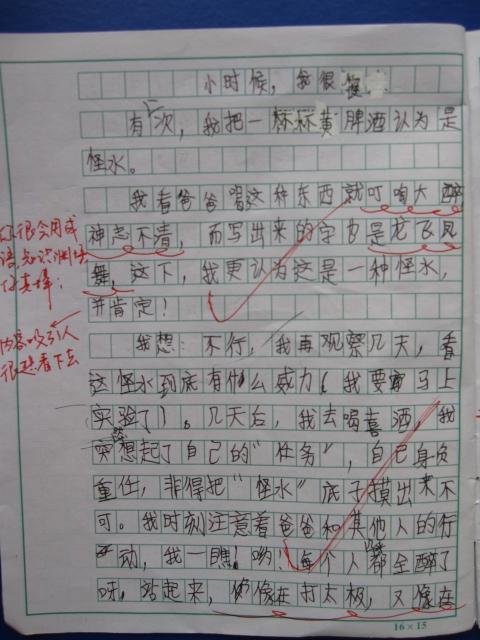 小时候，我很
有一次，我把一杯杯黄脾酒认为是
怪水。
我看爸爸喝这种东西就叮咛大醉
神志不清，而写出来的字也是龙飞凤
舞，这下，我更认为这是一种怪水，
并肯定！
我想：不行，我再观察几天，看
这怪水到底有什么威力！我要马上
实验了！。几天后，我去喝喜酒，我
突然想起了自己的“任务”，自己身负
重任，非得把“怪水”底子摸出来不
可。我时刻注意着爸爸和其他人的行
动，我一瞧！哟！每个人都全醉了
呀，站起来，好像在打太极，又像在
你很会用成
语
内容吸引人
很想看下去
16×15